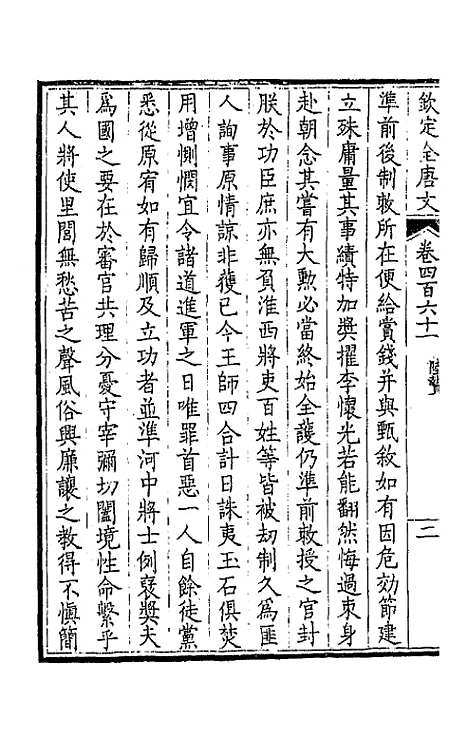 欽定全唐文 卷四百六十一 陸贄 二
準前後制敕所在便給賞錢并與甄敘如有因危効節建
立殊庸量其事績特加獎擢李懷光若能翻然悔過束身
赴朝念其嘗有大勲必當終始全護仍準前敕授之官封
朕於功臣庶亦無負淮西將吏百姓等皆被刼制久為匪
人詢事原情諒非獲已今王師四合計日誅夷玉石俱焚
用增惻憫宜令諸道進軍之日唯罪首惡一人自餘徒黨
悉從原宥如有歸順及立功者並準河中將士例褒獎夫
為國之要在於審官共理分憂守宰彌切闔境性命繫乎
其人將使里閭無愁苦之聲風俗興廉讓之教得不慎簡